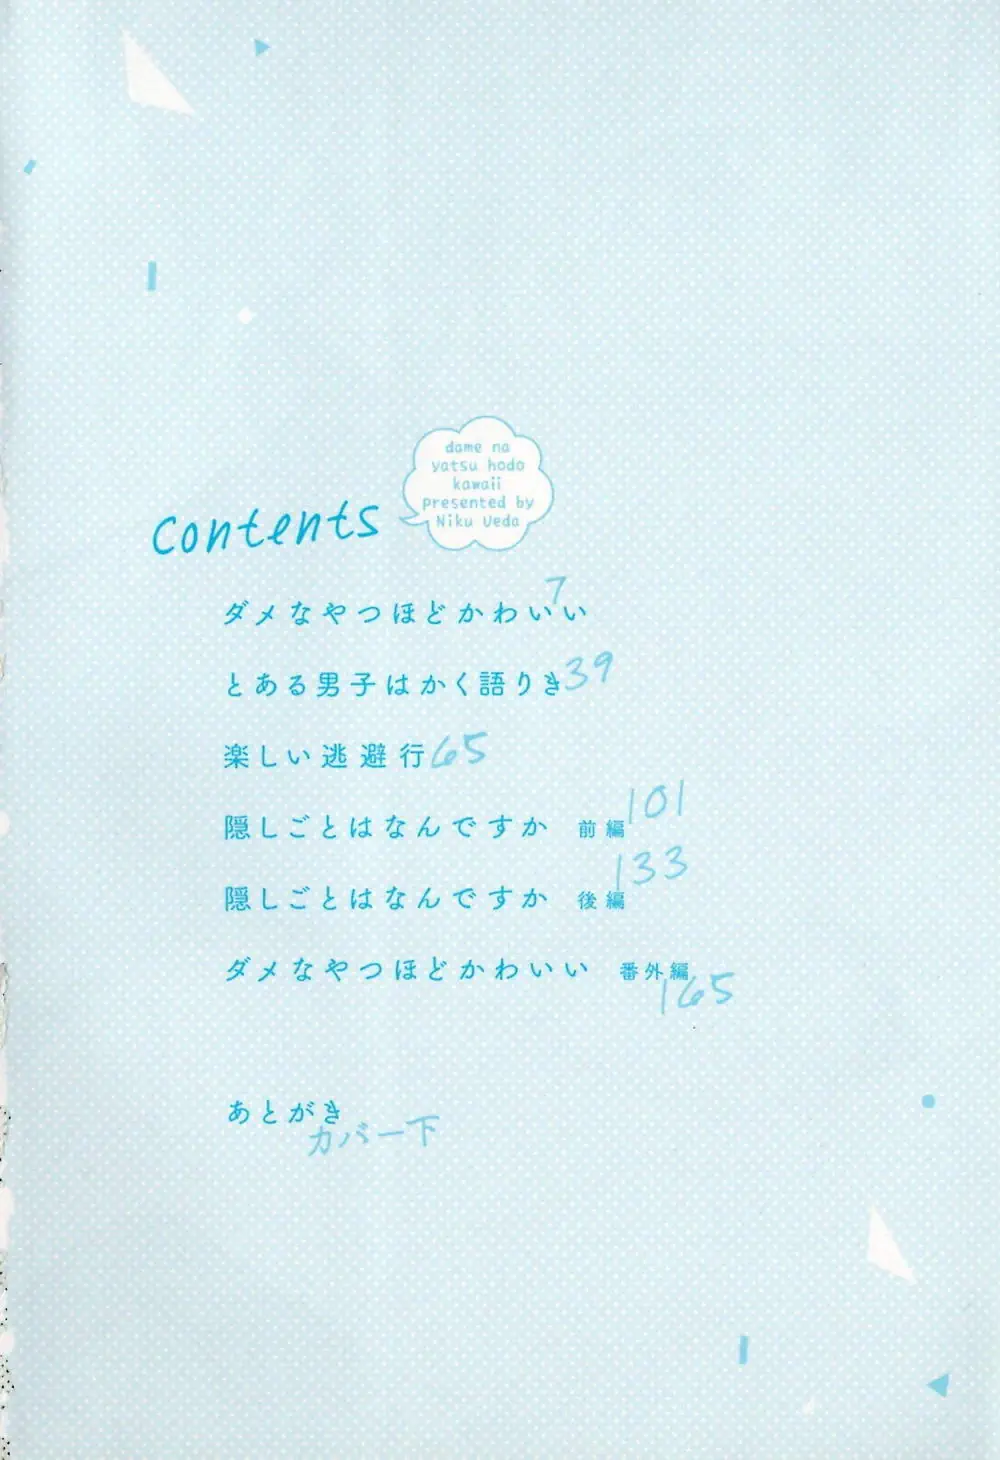 dame na
yatsu hodo
kawaii
presented by
Niku Ueda
contents
ダメなやつほどかわいい 7
とある男子はかく語りき 39
楽しい逃避行 65
隠しごとはなんですか 前編 101
隠しごとはなんですか 後編 133
ダメなやつほどかわいい 番外編 165
あとがき カバー下